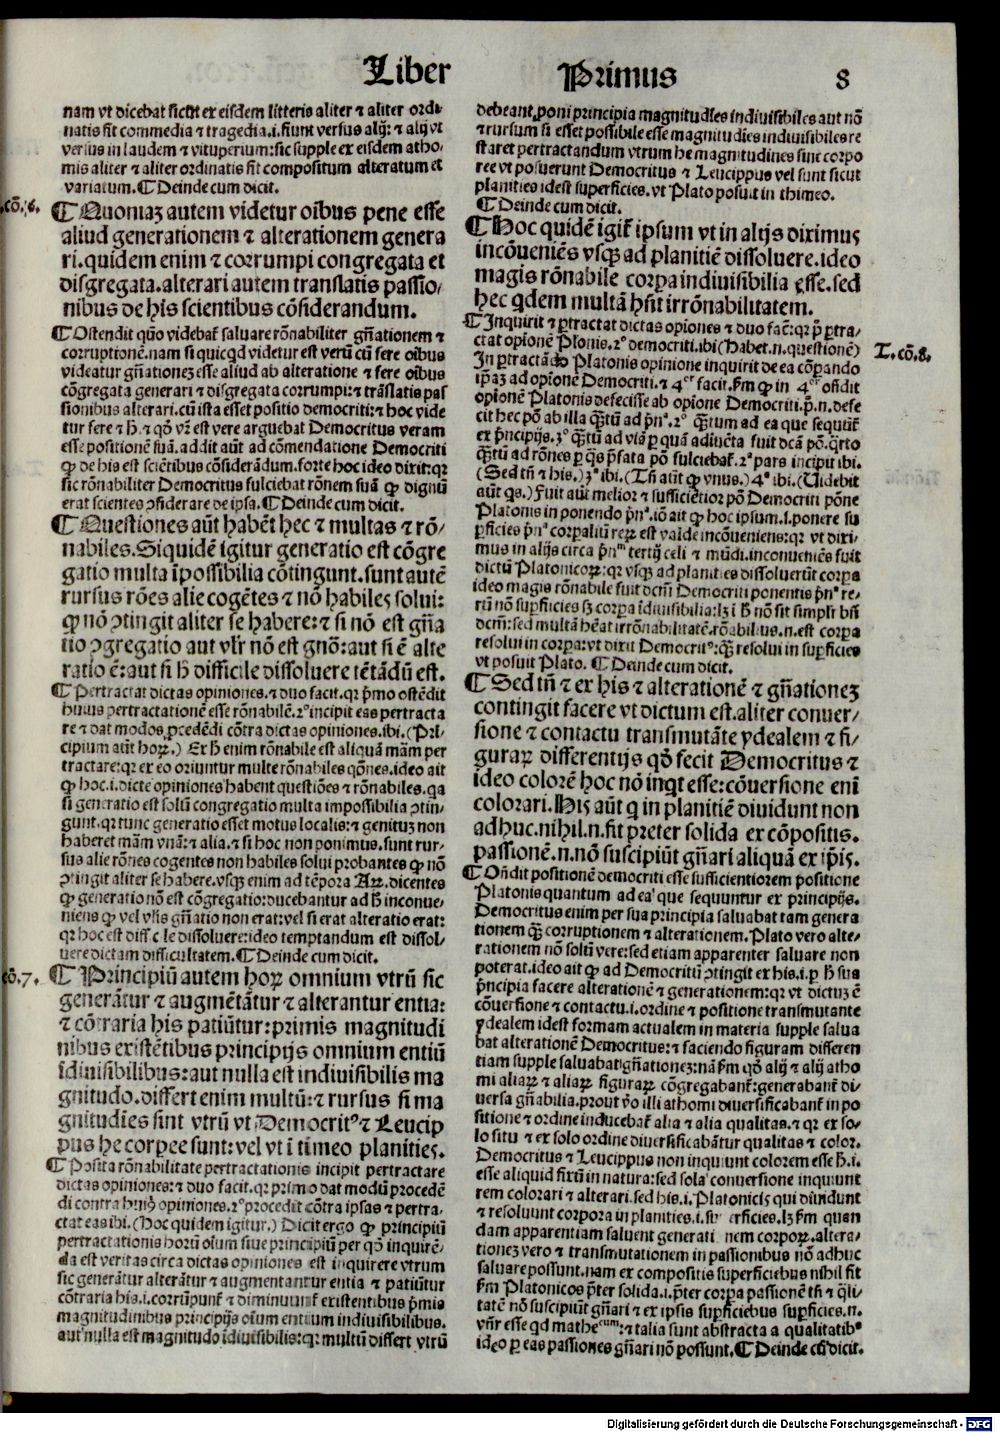 Liber Primus 8
nam vt dicebat sicut ex eisdem litteris aliter ⁊ aliter ordi-
natis fit commedia ⁊ tragedia.i.fiunt versus alij: ⁊ alij vt
versus in laudem ⁊ vituperium: sic supple ex eisdem atho-
mis aliter ⁊ aliter ordinatis fit compositum alteratum et
variatum. ¶ Deinde cum dicit.
cõ.6.
¶ Quoniaz autem videtur oĩbus pene esse
aliud generationem ⁊ alterationem genera
ri.quidem enim ⁊ corrumpi congregata et
disgregata.alterari autem translatis passio-
nibus de his scientibus cõsiderandum.
¶ Ostendit quõ videbat̃ saluare rõnabiliter gñationem ⁊
corruptionẽ.nam si quicqd videtur est verũ cũ fere oĩbus
videatur gñationez esse aliud ab alteratione ⁊ fere oĩbus
cõgregata generari ⁊ disgregata corrumpi: ⁊ trãslatis pas
sionibus alterari.cũ ista esset positio democriti: ⁊ hoc vide
tur fere ⁊ h̃. ⁊ qõ vr̃ est vere arguebat Democritus veram
esse positionẽ suã.addit aũt ad cõmendatione Democriti
ꝙ de his est sciẽtibus cõsiderãdum.forte hoc ideo dixit: qꝛ
sic rõnabiliter Democritus fulciebat rõnem suã ꝙ dignũ
erat scientes ꝯsiderare de ipsa. ¶ Deinde cum dicit.
¶ Questiones aũt habẽt hec ⁊ multas ⁊ rõ-
nabiles. Siquidẽ igitur generatio est cõgre
gatio multa ĩpossibilia cõtingunt.sunt autẽ
rursus rões alie cogẽtes ⁊ nõ habiles solui:
ꝙ nõ ꝯtingit aliter se habere: ⁊ si nõ est gña
tio ꝯgregatio aut vl'r nõ est gñõ: aut si ẽ alte
ratio ẽ: aut si h̃ difficile dissoluere tẽtãdũ est.
¶ Pertractat dictas opiniones. ⁊ duo facit.qꝛ p̃mo ostẽdit
huius pertractationẽ esse rõnabilẽ.2º incipit eas pertracta
re ⁊ dat modos ꝓcedẽdi cõtra dictas opiniones.ibi.(Pri-
cipium aũt hoꝝ.) Ex h̃ enim rõnabile est aliquã mãm per
tractare: qꝛ ex eo oriuntur multe rõnabiles qõnes.ideo ait
ꝙ hoc.i.dicte opiniones habent questiões ⁊ rõnabiles.qa
si generatio est solũ congregatio multa impossibilia ꝯtin-
gunt.qꝛ tunc generatio esset motus localis: ⁊ genituz non
haberet mãm vnã: ⁊ alia. ⁊ si hoc non ponimus.sunt rur-
sus alie rõnes cogentes non habiles solui probantes ꝙ nõ
ꝯtingit aliter se habere.vsqꝫ enim ad tẽpora Aꝝ.dicentes
ꝙ generatio nõ est cõgregatio: ducebantur ad h̃ inconue-
niens ꝙ vel vl'is gñatio non erat: vel si erat alteratio erat:
qꝛ hoc est difficile dissoluere: ideo temptandum est dissol-
uere dictam difficultatem. ¶ Deinde cum dicit.
cõ.7.
¶ Principiũ autem hoꝝ omnium vtrũ sic
generãtur ⁊ augmẽtãtur ⁊ alterantur entia:
⁊ cõtraria his patiũtur: primis magnitudi
nibus existẽtibus principijs omnium entiũ
ĩdiuisibilibus: aut nulla est indiuisibilis ma
gnitudo.differt enim multũ: ⁊ rursus si ma
gnitudies sint vtrũ vt Democritꝰ ⁊ Leucip
pus he corpee sunt: vel vt ĩ timeo planities.
¶ Posita rõnabilitate pertractationis incipit pertractare
dictas opiniones: ⁊ duo facit.qꝛ primo dat modũ procedẽ
di contra huiꝰ opiniones.2º procedit cõtra ipsas ⁊ pertra-
ctat eas ibi.(Hoc quidem igitur.) Dicit ergo ꝙ principiũ
pertractationis horũ oĩum siue principiũ per qõ inquirẽ-
da est veritas circa dictas opiniones est inquirere vtrum
sic generãtur alterãtur ⁊ augmentantur entia ⁊ patiũtur
cõtraria his.i.corrũpunt̃ ⁊ diminuunt̃ existentibus p̃mis
magnitudinibus principijs oĩum entium indiuisibilibus.
aut nulla est magnitudo ĩdiuisibilis: qꝛ multũ differt vtrũ
debeant poni principia magnitudĩes indiuisibiles aut nõ
⁊ rursum si esset possibile esse magnitudies indiuisibiles re
staret pertractandum vtrum he magnitudines sint corpo
ree vt posuerunt Democritus ⁊ Leucippus vel sunt sicut
planities idest superficies.vt Plato posuit in thimeo.
¶ Deinde cum dicit.
¶ Hoc quidẽ igit̃ ipsum vt in alijs diximus
incõueniẽs vsqꝫ ad planitiẽ dissoluere.ideo
magis rõnabile corpa indiuisibilia esse.sed
hec qdem multã hñt irrõnabilitatem.
T.cõ.8.
¶ Inquirit ⁊ ꝑtractat dictas opiones ⁊ duo fac̃: qꝛ p̃ ꝑtra-
ctat opionẽ Plõnis.2º democriti.ibi (Habet.n.questionẽ)
In ꝑtractãdo Platonis opinione inquirit de ea cõꝑando
ip̃az ad opionẽ Democriti. ⁊ 4ᵉʳ facit.ẜm ꝙ in 4ᵉʳ oñdit
opionẽ Platonis defecisse ab opione Democriti.p̃.n.defe
cit hec põ ab illa qꝫtũ ad p̃nª.2º qꝫtum ad ea que sequũt̃
ex p̃ncipijs.3º qꝫtũ ad viã ꝑ quã adiuẽta fuit dcã põ.q̃rto
qꝫtũ ad rõnes ꝑ qs p̃fata põ fulciebat̃.2ª pars incipit ibi.
(Sed tñ ⁊ his.) 3ª ibi.(Tñ aũt ꝙ vnus.) 4ª ibi.(Uidebit
aũt qs.) Fuit aũt melior ⁊ sufficiẽtior põ Democriti põne
Platonis in ponendo p̃nª.iõ ait ꝙ hoc ipsum.s.ponere su
ꝑficies p̃nª corpaliũ reꝝ est valde incõueniens: qꝛ vt dixi-
mus in alijs circa p̃nᵐ tertij celi ⁊ mũdi.inconueniẽs fuit
dictũ Platonicoꝝ: qꝛ vsqꝫ ad planities dissoluerũt corpa
ideo magis rõnabile fuit dcm̃ Democriti ponentis p̃nª re-
rũ nõ suꝑficies sꝫ corpa ĩdiuisibilia: lꝫ ĩ h̃ nõ sit simplr̃ bñ
dcm̃: sed multã hẽat irrõnabilitatẽ.rõabilius.n.est corpa
resolui in corpa: vt dixit Democritꝰ: qꝫ resolui in suꝑficies
vt posuit Plato. ¶ Deinde cum dicit.
¶ Sed tñ ⁊ ex his ⁊ alterationẽ ⁊ gñationez
contingit facere vt dictum est.aliter conuer-
sione ⁊ contactu transmutãte ydealem ⁊ fi-
guraꝝ differentijs qõ fecit Democritus ⁊
ideo colorẽ hoc nõ inqt esse: cõuersione eni
colorari. His aũt q in planitiẽ diuidunt non
adhuc.nihil.n.fit preter solida ex cõpositis.
passionẽ.n.nõ suscipiũt gñari aliquã ex ip̃is.
¶ Oñdit positionẽ democriti esse sufficientiorem positione
Platonis quantum ad ea que sequuntur ex principijs.
Democritus enim per sua principia saluabat tam genera
tionem qꝫ corruptionem ⁊ alterationem.Plato vero alte-
rationem nõ solũ vere: sed etiam apparenter saluare non
poterat.ideo ait ꝙ ad Democritũ ꝯtingit ex his.i.ꝑ h̃ sua
p̃ncipia facere alterationẽ ⁊ generationem: qꝛ vt dictuz ẽ
cõuersione ⁊ contactu.i.ordine ⁊ positione transmutante
ydealem idest formam actualem in materia supple salua
bat alterationẽ Democritus: ⁊ faciendo figuram differen
tiam supple saluabat gñationez: nã ẜm qõ alij ⁊ alij atho
mi aliaꝝ ⁊ aliaꝝ figuraꝝ cõgregabant̃: generabant̃ di-
uersa gñabilia.prout ṽo illi athomi diuersificabant̃ in po
sitione ⁊ ordine inducebat̃ alia ⁊ alia qualitas. ⁊ qꝛ ex so-
lo situ ⁊ ex solo ordine diuersificabãtur qualitas ⁊ color.
Democritus ⁊ Leucippus non inquiunt colorem esse h̃.i.
esse aliquid fixũ in natura: sed sola conuersione inquiunt
rem colorari ⁊ alterari.sed his.i.Platonicis qui diuidunt
⁊ resoluunt corpora in planities.i.superficies.lꝫ ẜm quan
dam apparentiam saluent generationem corpoꝝ.altera-
tionez vero ⁊ transmutationem in passionibus nõ adhuc
saluare possunt.nam ex compositis superficiebus nihil fit
ẜm Platonicos p̃ter solida.i.p̃ter corpa passionẽ tñ ⁊ q̃li-
tatẽ nõ suscipiũt gñari ⁊ ex ipsis suꝑficiebus suꝑficies.n.
vñr esse qd matheᶜᵘᵐ: ⁊ talia sunt abstracta a qualitatibꝰ
ideo ꝑ eas passiones gñari nõ possunt. ¶ Deinde cũ dicit.
Digitalisierung gefördert durch die Deutsche Forschungsgemeinschaft - DFG